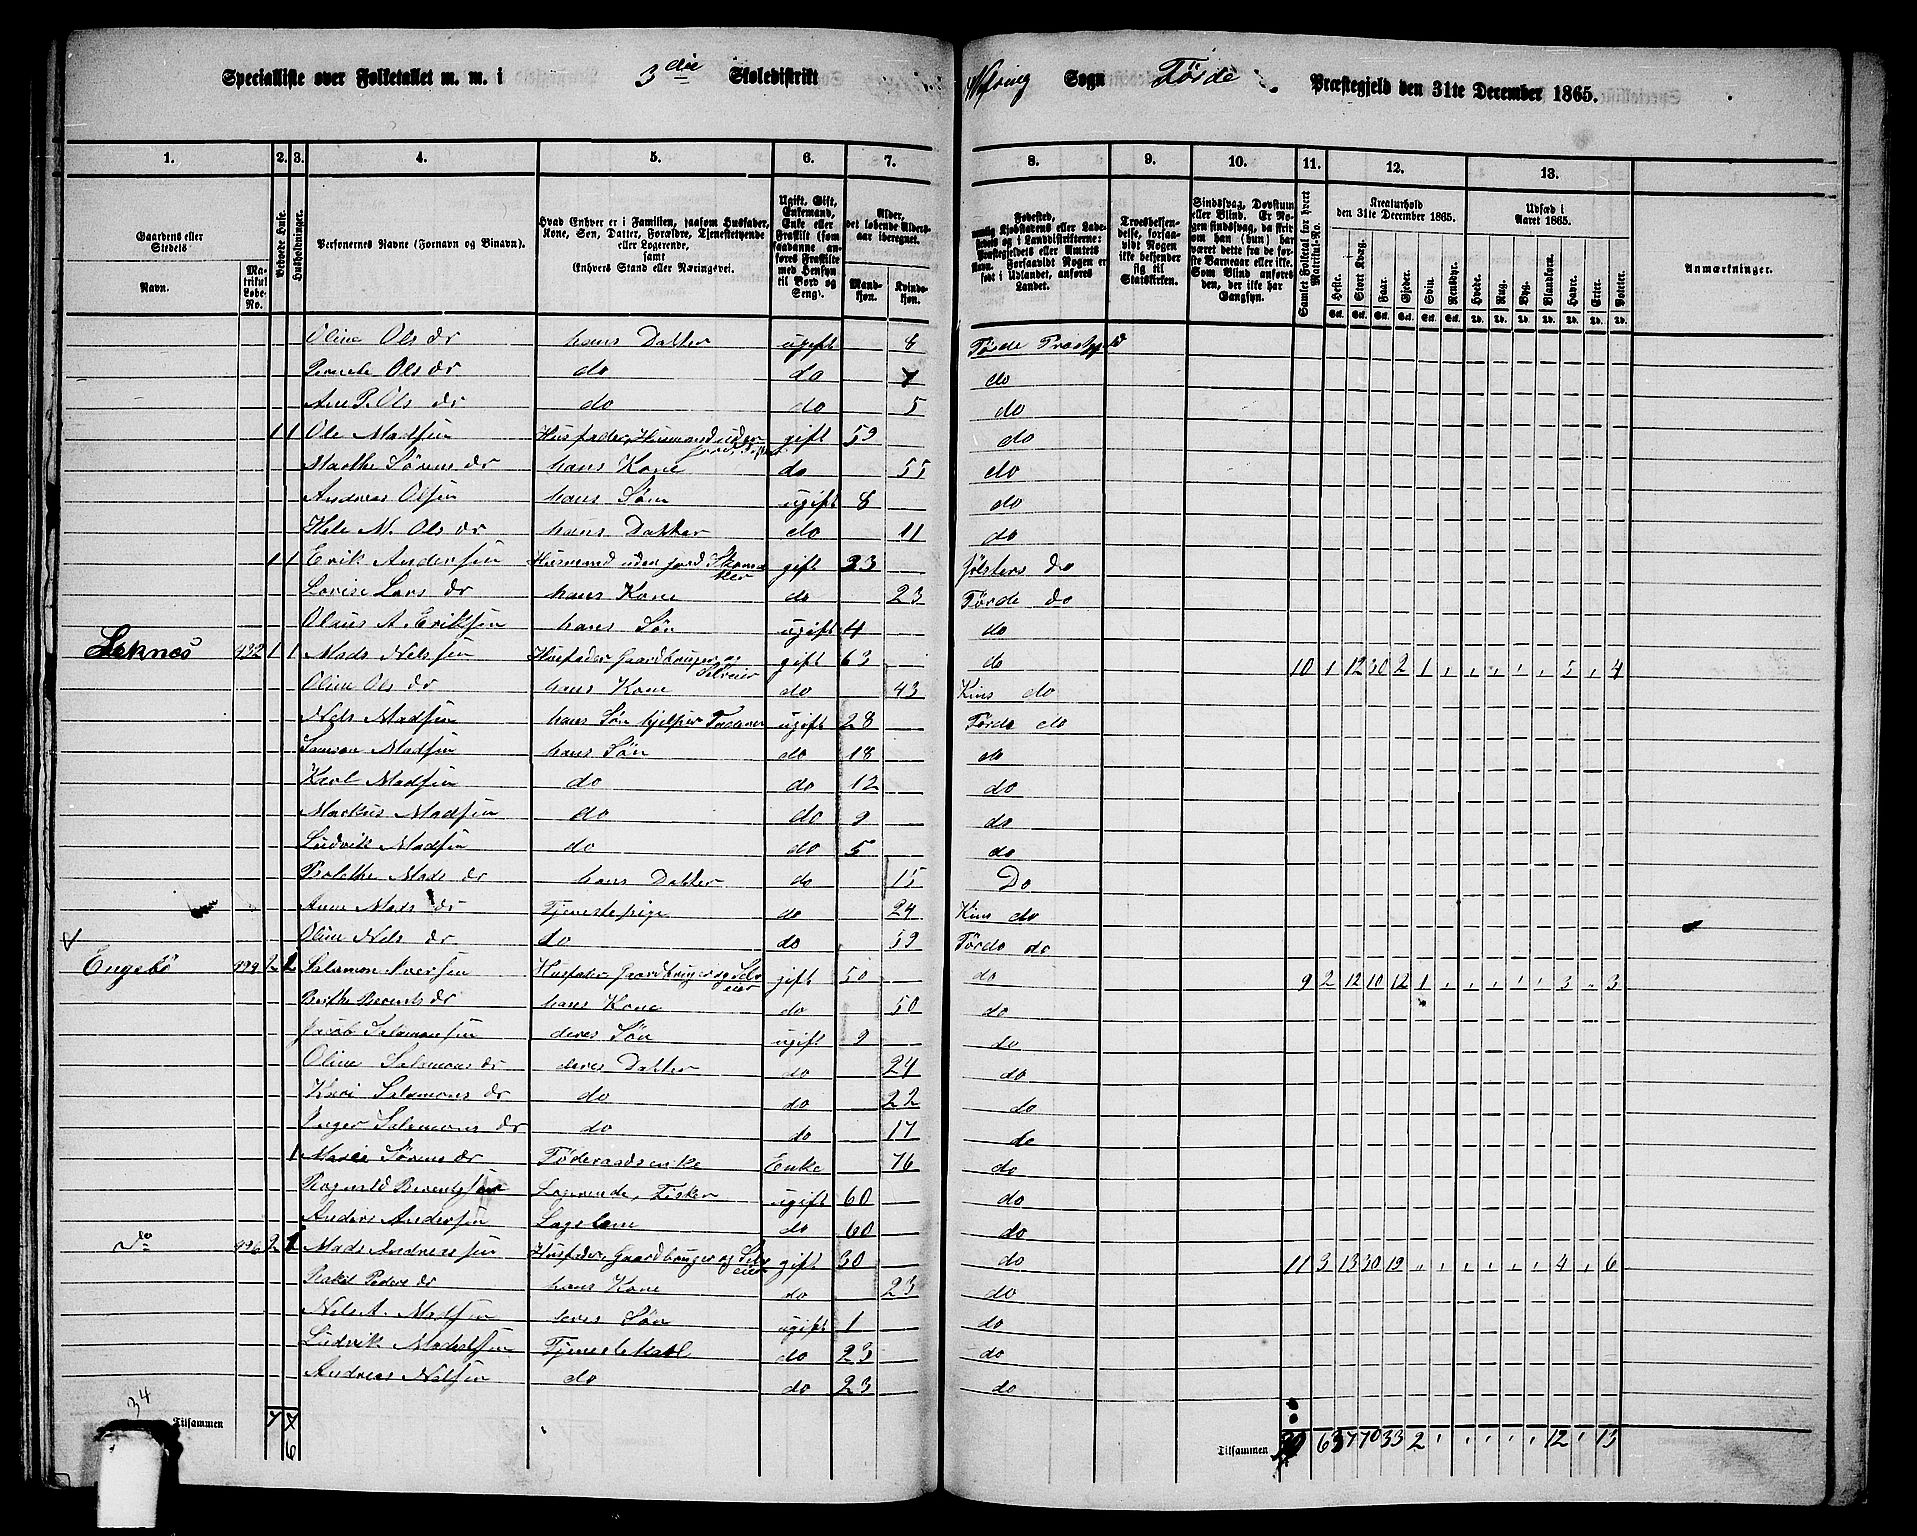 Specialliste over Folketallet m. m. i 3die Skoledistrikt
Sogn Førde Præstegjeld den 31te December 1865.
1. 2. 3. 4. 5. 6. 7. 8. 9. 10. 11. 12. 13.
Gaardens eller Stedets
Navn. Matrikul Løbe-No.
Bebvede Huse.
Huusholdninger.
Personernes Navne (Fornavn og Binavn).
Hvad Enhver er i Familien, saasom Husfader, Kone, Søn, Datter, Forældre, Tjenestetyende eller Logerende, samt Enhvers Stand eller Næringsvei.
Ugift, Gift, Enkemand, Enke eller Fraskilt (som saadanne anføres Fraskilte med Hensyn til Bord og Seng).
Alder, det løbende Aldersaar iberegnet.
Mandkjøn. Kvindekjøn.
Troesbekjendelse, forsaavidt Nogen ikke bekjender sig til Statskirken.
Samlet Folketal for hvert Matrikul-No.
Kreaturhold den 31te December 1865.
Heste. Stort Kvæg. Faar. Gjeder. Sviin. Rensdyr.
Udsæd i Aaret 1865.
Hvede. Rug. Byg. Blandkorn. Havre. Erter. Poteter.
Anmærkninger.
Oline Olsdr hans Datter ugift 8 Førde Præstgjeld
Pernete Olsdr do do 7 do
Ane P. Olsdr do do 5 do
1 1 Ole Madsen Husfader, Husmand uden Jord gift 59 do
Marthe Sørensdr hans Kone do 55 do
Andreas Olsen hans Søn ugift 8 do
Hele M. Olsdr hans Datter do 11 do
1 1 Erik Andersen Husmand uden Jord gift 23 Jølsters do
Lovise Larsdr hans Kone do 23 Førde do
Olaus A. Eriksen hans Søn ugift 4 do
Leknes 432 1 1 Mads Nelssen Husfader Gaardbruger og Selveier gift 63 do 10 1 12 30 2 1 5 4
Oline Olsdr hans Kone do 43 Kins do
Nels Madsen hans Søn hjelper Faderen ugift 28 Førde do
Samson Madsen hans Søn do 18 do
Karl Madsen do do 12 do
Markus Madsen do do 9 do
Ludvik Madsen do do 5 do
Bolethe Madsdr hans Datter do 15 Do
Anne Madsdr Tjenestepige do 24 Kins do
Oline Nelsdr do do 59 Førde do
Engebø 2 2 Salamon Iversen Husfader Gaardbruger og Selveier gift 50 do 9 2 12 10 12 1 3 3
Berthe Berentsdr hans Kone do 50 do
Jacob Salamonsen deres Søn ugift 9 do
Oline Salamonsdr deres Datter do 24 do
Kari Salamonsdr do do 22 do
Inger Salamonsdr do do 17 do
1 Marie Sørensdr Føderaadsenke Enke 76 do
Rognald Berentssen Logerende, Fisker ugift 60 do
Anders Andersen Lægslem do 60 do
do 2 1 Mads Andreassen Husfader Gaardbruger og Selveier gift 30 do 11 3 13 30 19 4 6
Rakel Pedersdr hans Kone do 23 do
Nels A. Madsen deres Søn ugift 1 do
Ludvik Madssen Tjenestekarl do 23 do
Andreas Nelsen do do 23 do
34
Tilsammen 7 7 6
Tilsammen 30 6 37 70 33 2 12 13